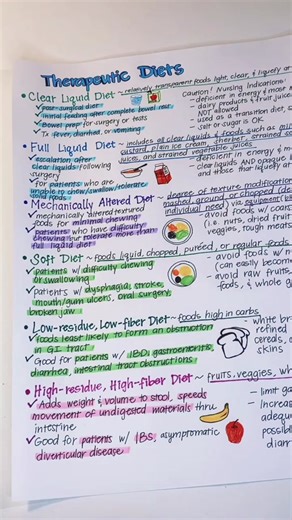 Therapeutic Diets
• Clear Liquid Diet ~ relatively transparent foods light, clear, & liquidy at
✓ post-surgical diet
✓ initial feeding after complete bowel rest
✓ Bowel prep for surgery or tests
✓ Tx fever, diarrhea, or vomiting
Caution! Nursing Indications:
- deficient in energy & most
- dairy products & fruit juices
NOT allowed
- used as a transition diet,
- salt or sugar is OK
• Full Liquid Diet ~ includes all clear liquids & foods such as
custard, plain ice cream, sherbet, strained
juices, and strained vegetable juices.
✓ escalation after
clear liquids following
surgery
✓ For patients who are
unable to chew/swallow/tolerate
solid foods
- deficient in energy &
- clear liquids AND opaque
and those that liquidy at
• Mechanically Altered Diet ~ degree of texture modification
mashed, ground, or chopped
individual need
✓ mechanically altered textured
foods for minimal chewing
✓ patients who have difficulty
chewing but tolerate more than
full liquid diet
- avoid foods w/ coarse
(i.e. nuts, dried fruit
veggies, tough meats
• Soft Diet ~ foods liquid, chopped, pureed, or regular foods
✓ patients w/ difficulty chewing
or swallowing
✓ patients w/ dysphagia, stroke,
mouth/gum ulcers, oral surgery,
broken jaw
- avoid foods w/
(can easily become
- avoid raw fruits
foods, & whole
• Low-residue, Low-fiber Diet ~ foods high in carbs
✓ foods least likely to form an obstruction
in G.I. tract
✓ Good for patients w/ IBD, gastroenteritis,
diarrhea, intestinal tract obstructions
- white
refined
cereals,
skins
• High-residue, High-fiber Diet ~ fruits, veggies,
✓ Adds weight & volume to stool, speeds
movement of undigested materials thru
intestine
✓ Good for patients w/ IBS, asymptomatic
diverticular disease
- limit
- Increase
possible